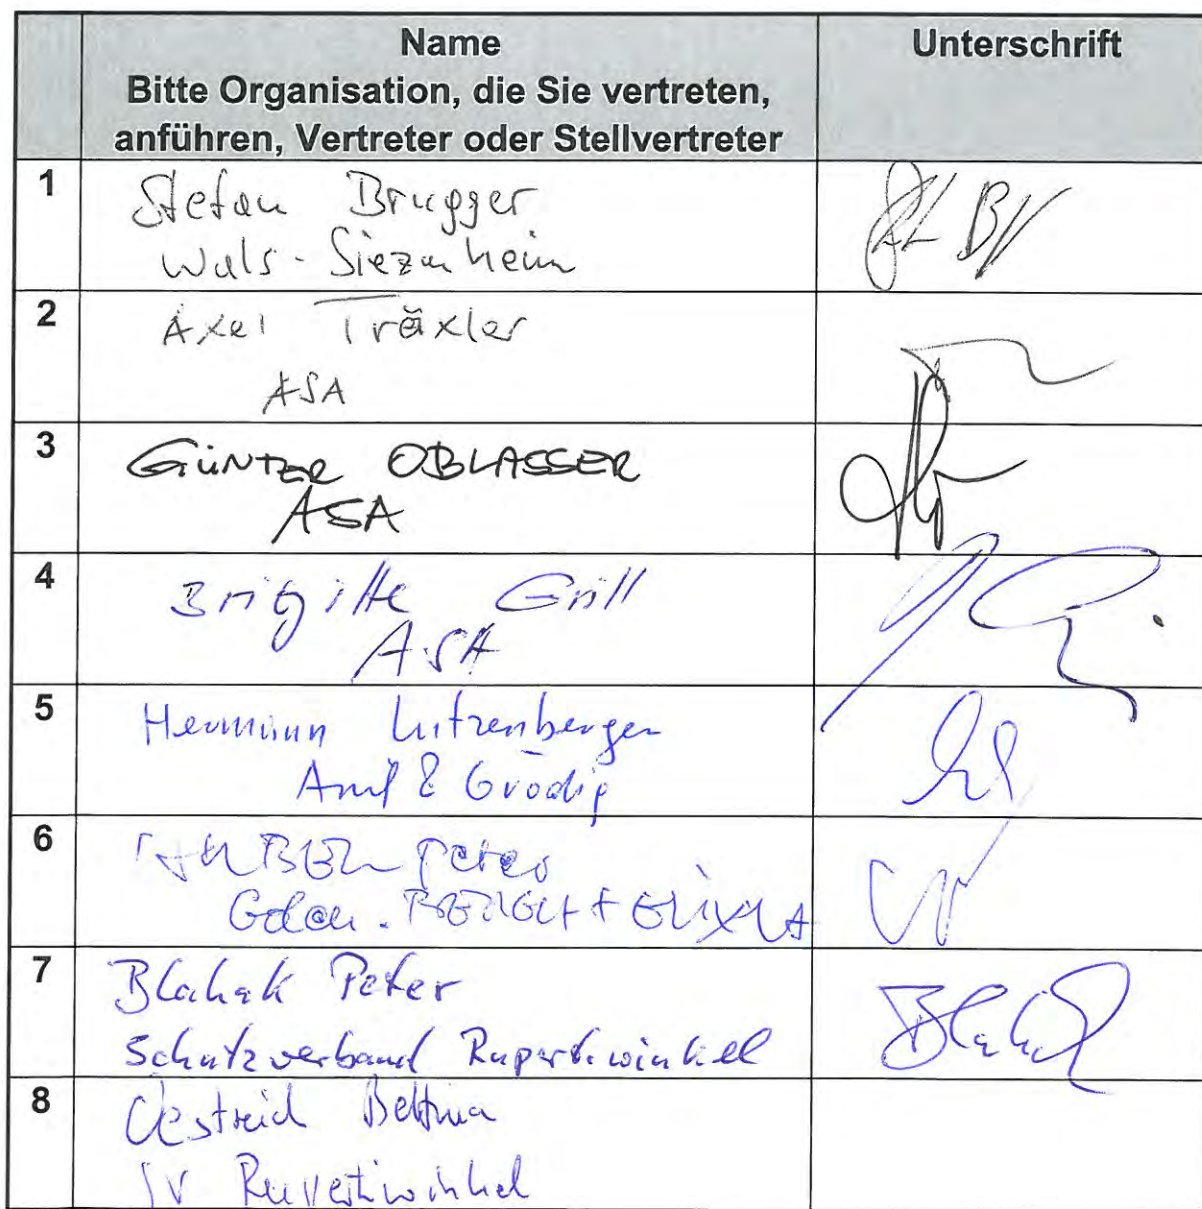 Name
Bitte Organisation, die Sie vertreten,
anführen, Vertreter oder Stellvertreter
Unterschrift
1
Stefan Brugger
Wals-Siezenheim
2
Axel Träxler
ASA
3
GÜNTER OBLASSER
ASA
4
Brigitte Grill
ASA
5
Hermann Lutzenberger
Anif & Grödig
6
Peter
7
Blahak Peter
Schutzverband Rupertiwinkel
Blahak
8
Oestreich Bettina
SV Rupertiwinkel